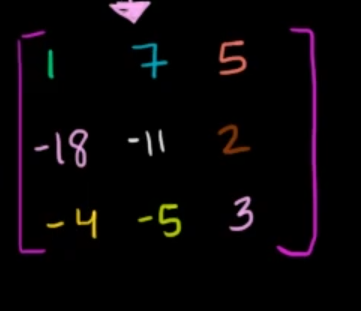 1 7 5
-18 -11 2
-4 -5 3